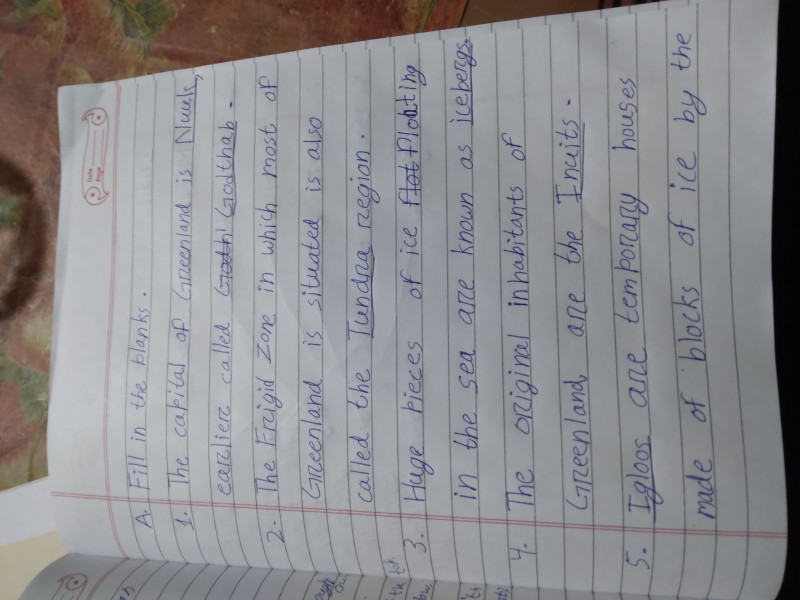 Date
Page
A. Fill in the blanks.
1. The capital of Greenland is Nuuk,
earlier called Godth Godthab.
2. The Frigid Zone in which most of
Greenland is situated is also
called the Tundra region.
3. Huge pieces of ice flot floating
in the sea are known as icebergs.
4. The original inhabitants of
Greenland, are the Inuits.
5. Igloos are temporary houses
made of blocks of ice by the